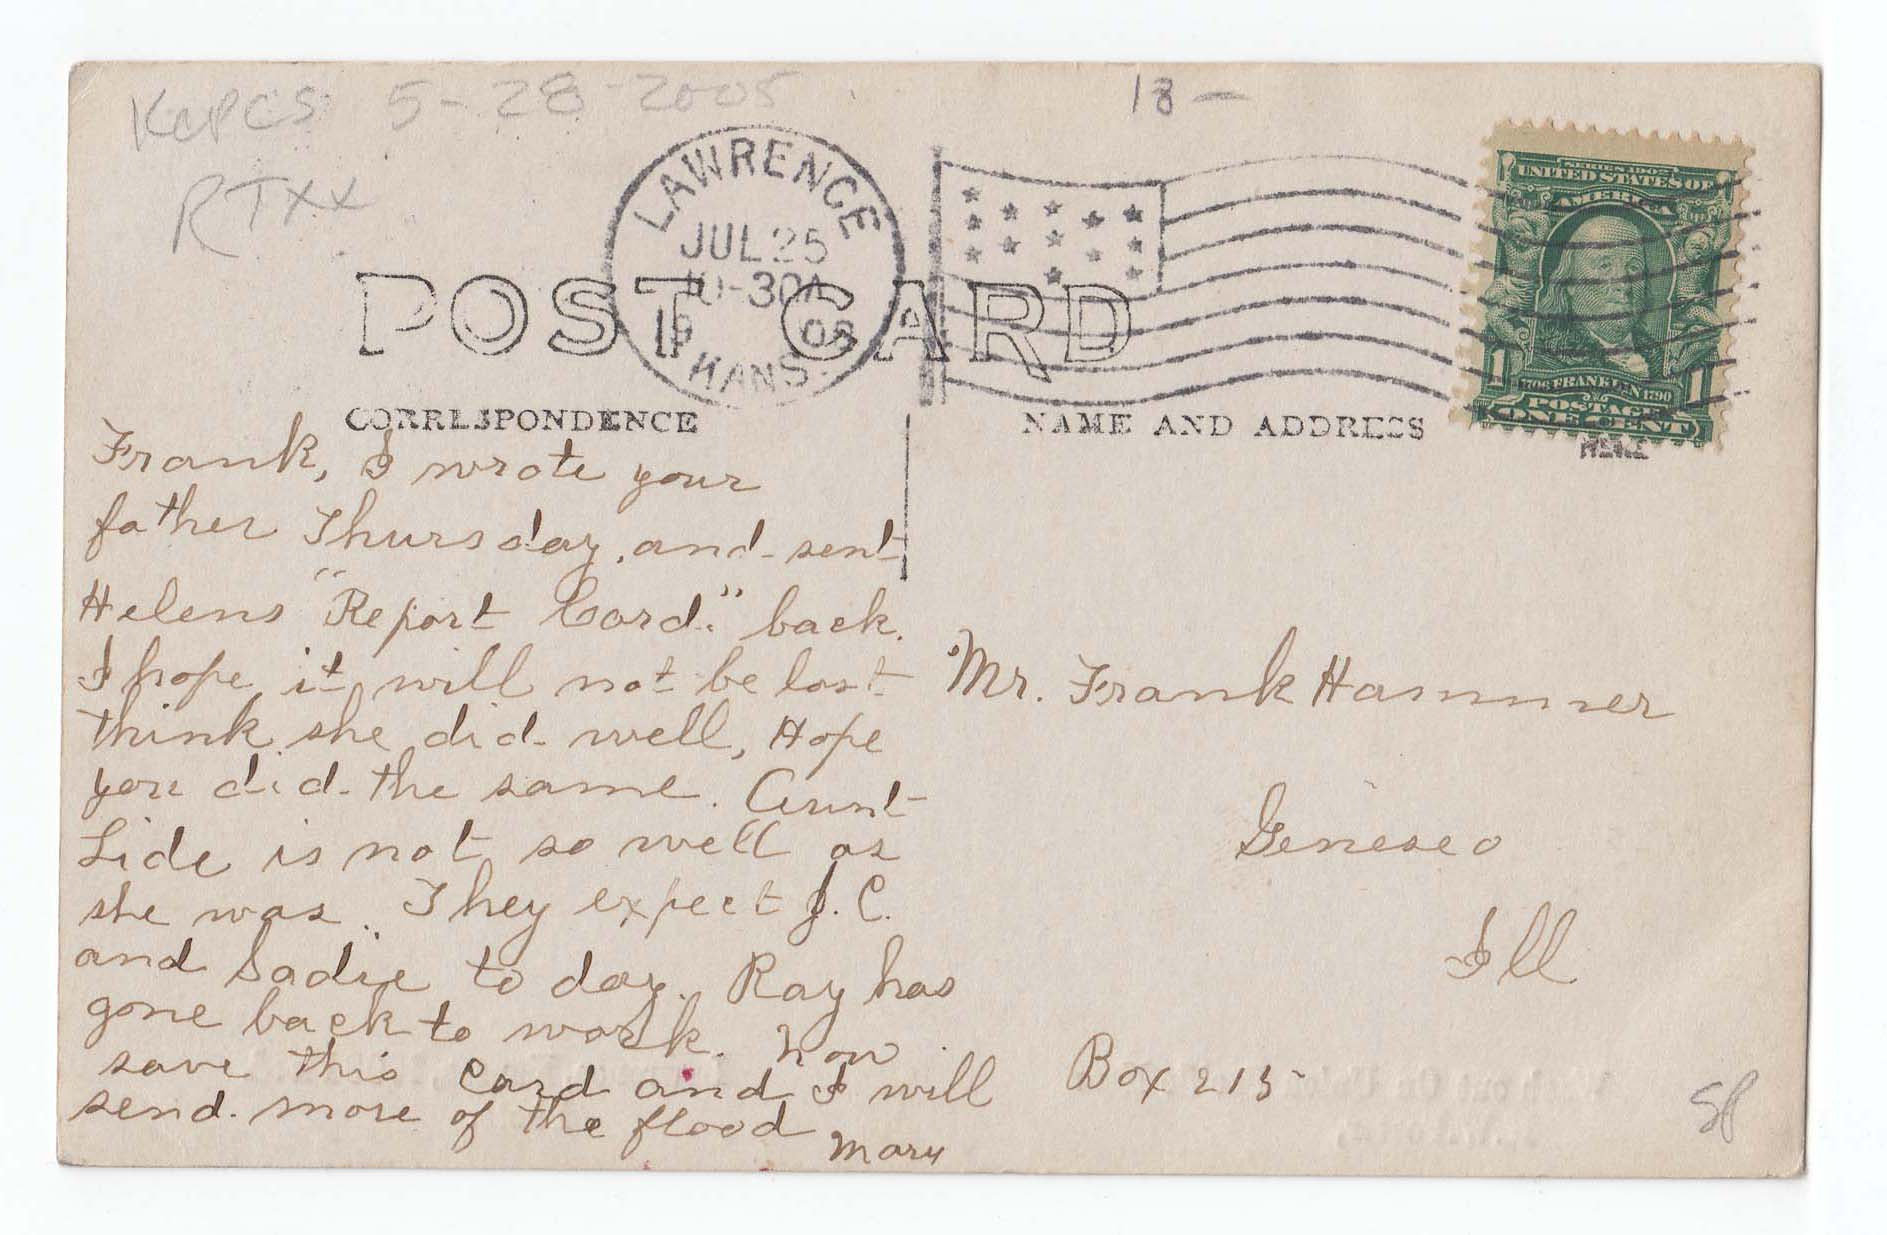 KCPCS 5-28-2005
18 —
RTXX
LAWRENCE
JUL 25
10-30A
19 08
KANS.
SERIES 1902
UNITED STATES OF
AMERICA
1 1
1706 FRANKLIN 1790
POSTAGE
ONE CENT
POST CARD
CORRESPONDENCE
NAME AND ADDRESS
HERE
Frank, I wrote your
father Thursday, and sent
Helens "Report Card." back.
I hope it will not be lost
think she did well, Hope
you did the same. Aunt
Lide is not so well as
she was. They expect J. C.
and Sadie to day. Ray has
gone back to work. Now
save this card and I will
send more of the flood
Mary
Mr. Frank Hammer
Geneseo
Ill
Box 215